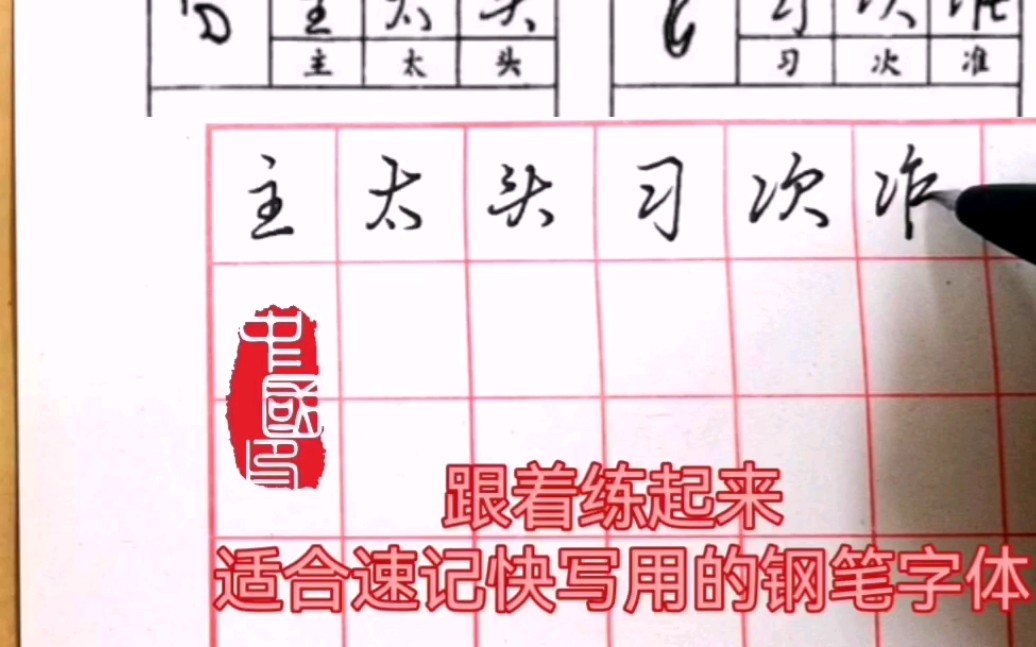 主 太 头 习 次 准
主 太 头 习 次 准
主 太 头 习 次
中國印
跟着练起来
适合速记快写用的钢笔字体